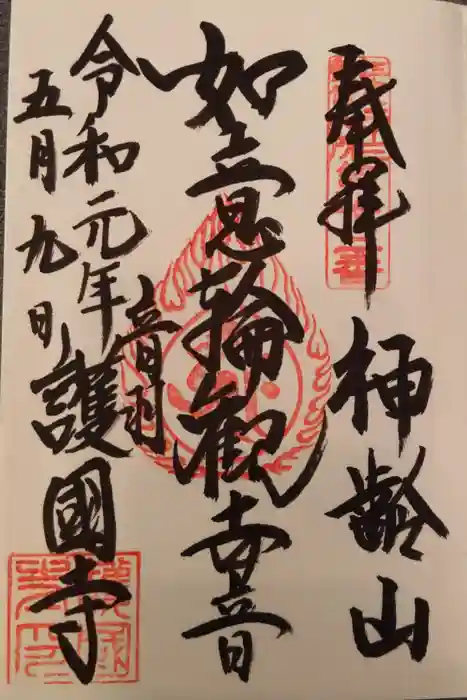 奉拝
神齢山
如意輪観世音
令和元年
五月九日
音羽
護國寺